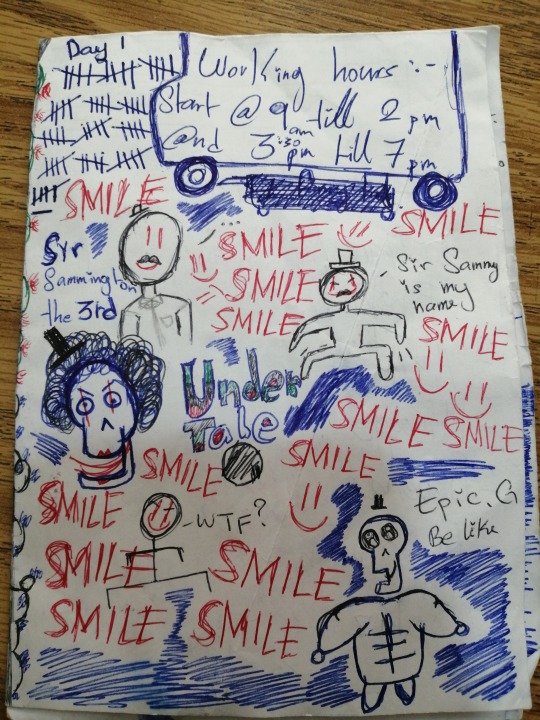 Day 1
Working hours :-
Start @ 9 am till 2 pm
and 3:30 pm till 7 pm
SMILE
SMILE
SMILE
Syr
Sammington
the 3rd
SMILE
Sir Sammy
is my
name
SMILE
SMILE
Under
Tale
SMILE
SMILE
SMILE
SMILE
SMILE
WTF?
Epic.G
Be like
SMILE
SMILE
SMILE
SMILE